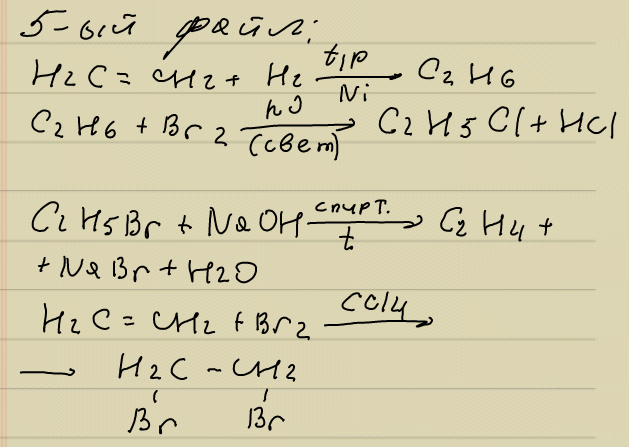 5-ый файл:
H2C = CH2 + H2 t,p → Ni C2H6
C2H6 + Br2 hν → (свет) C2H5Cl + HCl
C2H5Br + NaOH спирт. → t C2H4 +
+ NaBr + H2O
H2C = CH2 + Br2 CCl4 →
→ H2C - CH2
Br Br